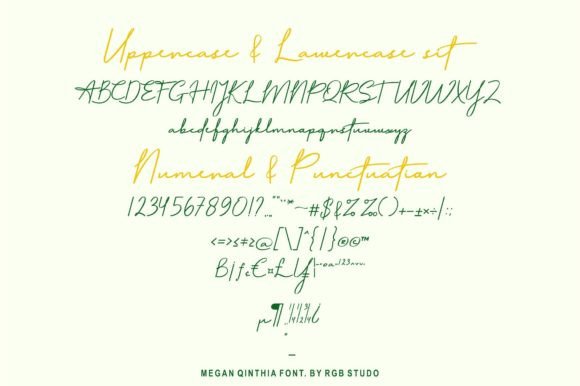 Uppercase & Lawercase sit
ABCDEFGHIJKLMNPQRSTUVWXYZ
abcdefghijklmnapqrstuvwxyz
Numeral & Punctuation
1234567890!?
~#$&%‰()+-±×÷/::
<=>≤≠≥@[\]^{|}©®™
ƒ¢€¤£¥
µ¶
MEGAN QINTHIA FONT. BY RGB STUDO